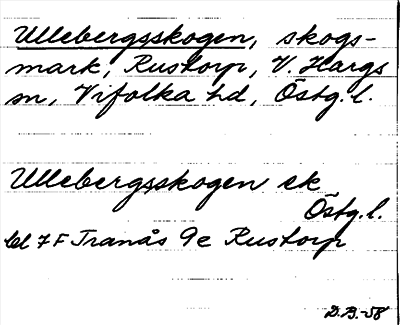 Ullebergsskogen, skogs-
mark, Rustorp, V. Hargs
sn, Vifolka hd, Östg. l.
Ullebergsskogen ek
Östg. l.
bl 7F Tranås 9e Rustorp
D.B.-58